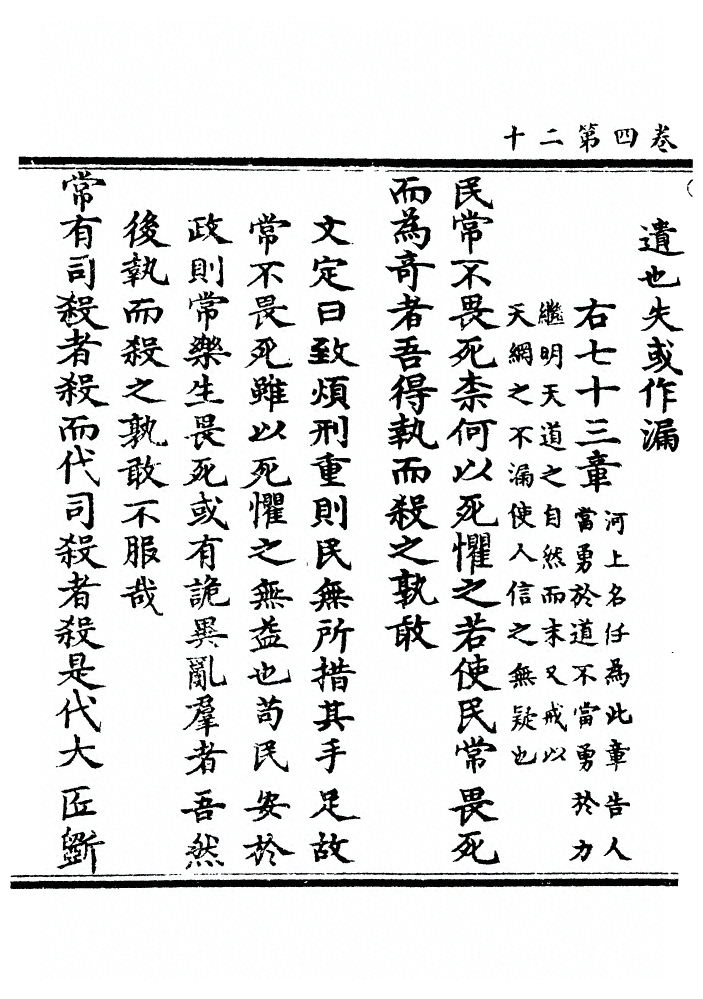 卷四第二十
遺也失或作漏
右七十三章河上名任為此章告人
當勇於道不當勇於力
繼明天道之自然而末又戒以
天網之不漏使人信之無疑也
民常不畏死柰何以死懼之若使民常畏死
而為奇者吾得執而殺之孰敢
文定曰致煩刑重則民無所措其手足故
常不畏死雖以死懼之無益也苟民安於
政則常樂生畏死或有詭異亂羣者吾然
後執而殺之孰敢不服哉
常有司殺者殺而代司殺者殺是代大匠斵